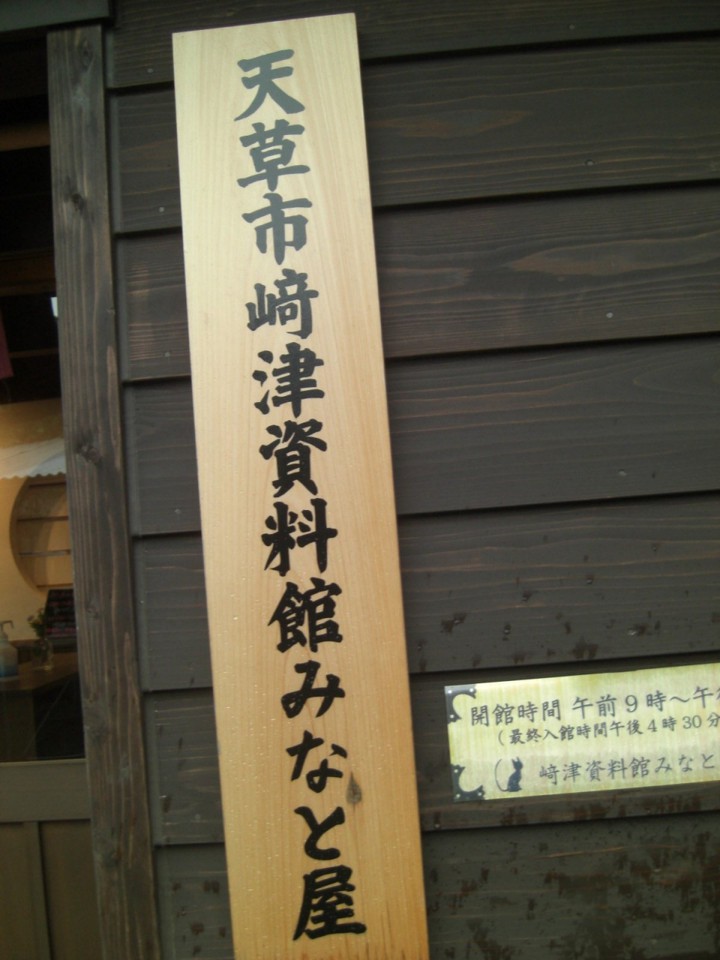 天草市﨑津資料館みなと屋
開館時間 午前9時～午
(最終入館時間午後4時30分
﨑津資料館みなと